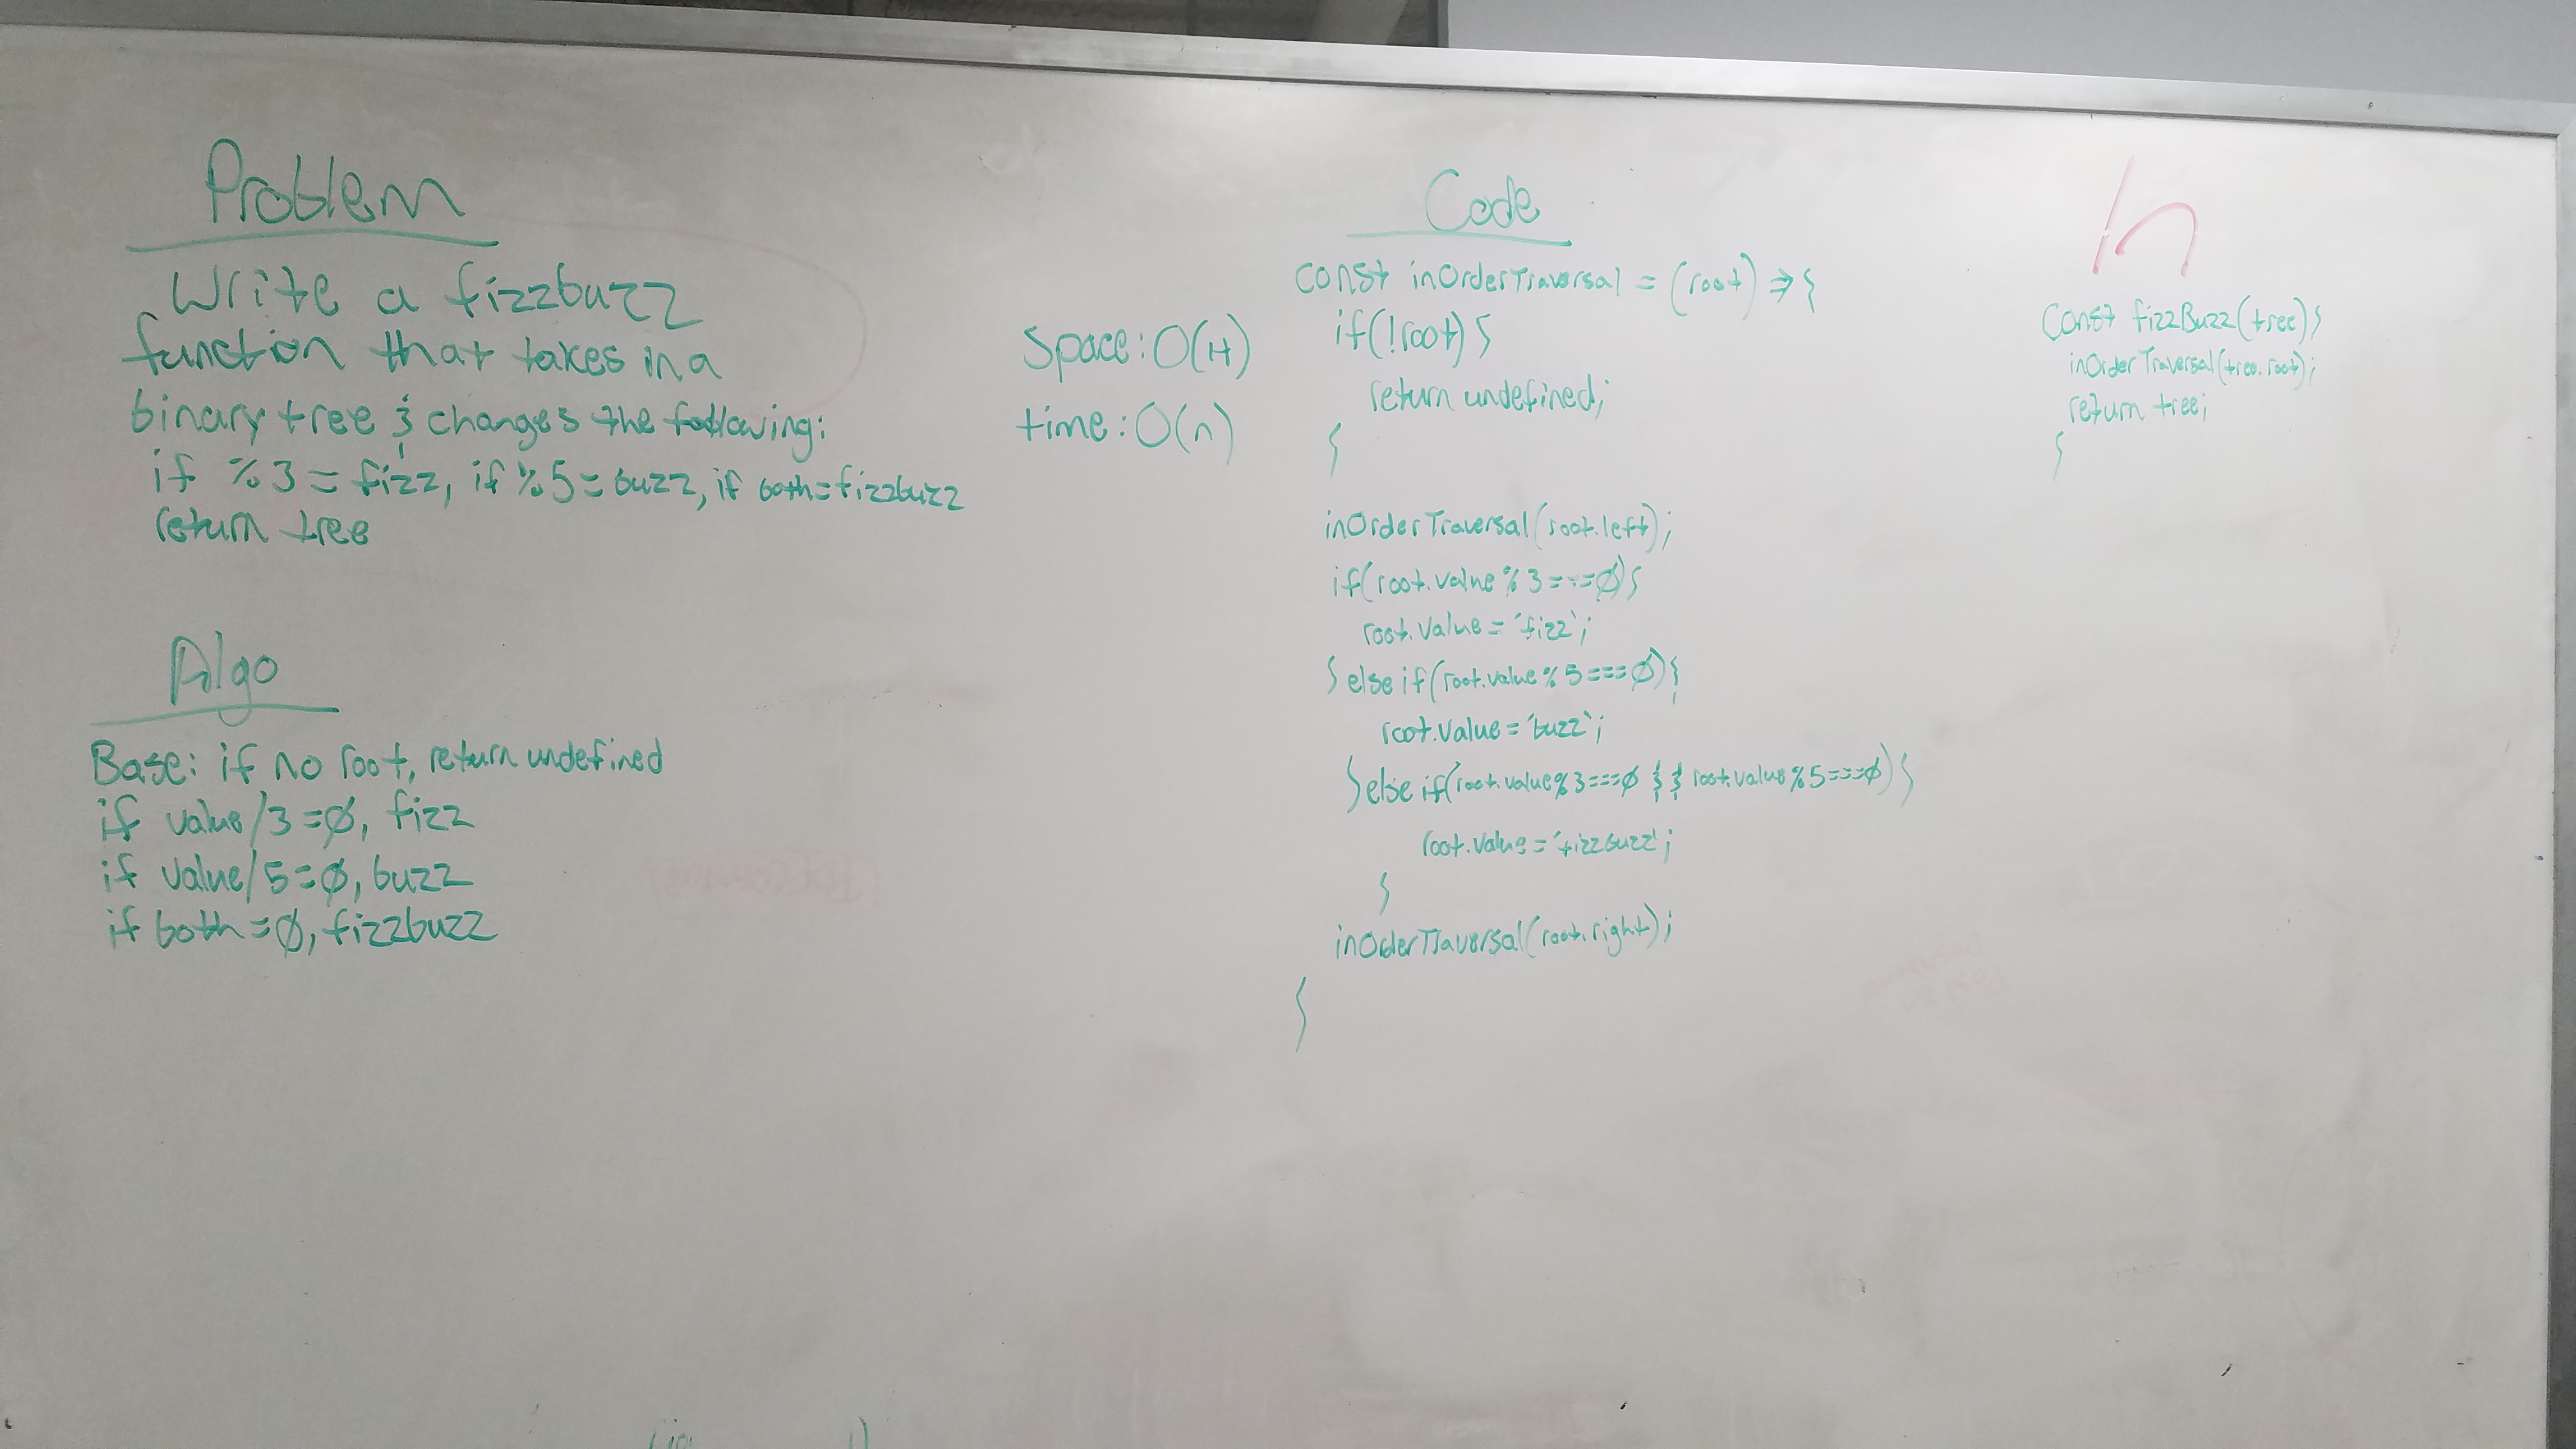 Problem
Write a fizzbuzz
function that takes in a
binary tree & changes the following:
if %3 = fizz, if %5 = buzz, if both = fizzbuzz
return tree
Algo
Base: if no root, return undefined
if value/3 = 0, fizz
if value/5 = 0, buzz
if both = 0, fizzbuzz
Space: O(H)
time: O(n)
Code
const inOrderTraversal = (root) => {
if(!root){
return undefined;
}
inOrderTraversal(root.left);
if(root.value % 3 === 0){
root.value = 'fizz';
}else if(root.value % 5 === 0){
root.value = 'buzz';
}else if(root.value % 3 === 0 && root.value % 5 === 0){
root.value = 'fizzbuzz';
}
inOrderTraversal(root.right);
}
h
Const fizzBuzz(tree){
inOrderTraversal(tree.root);
return tree;
}